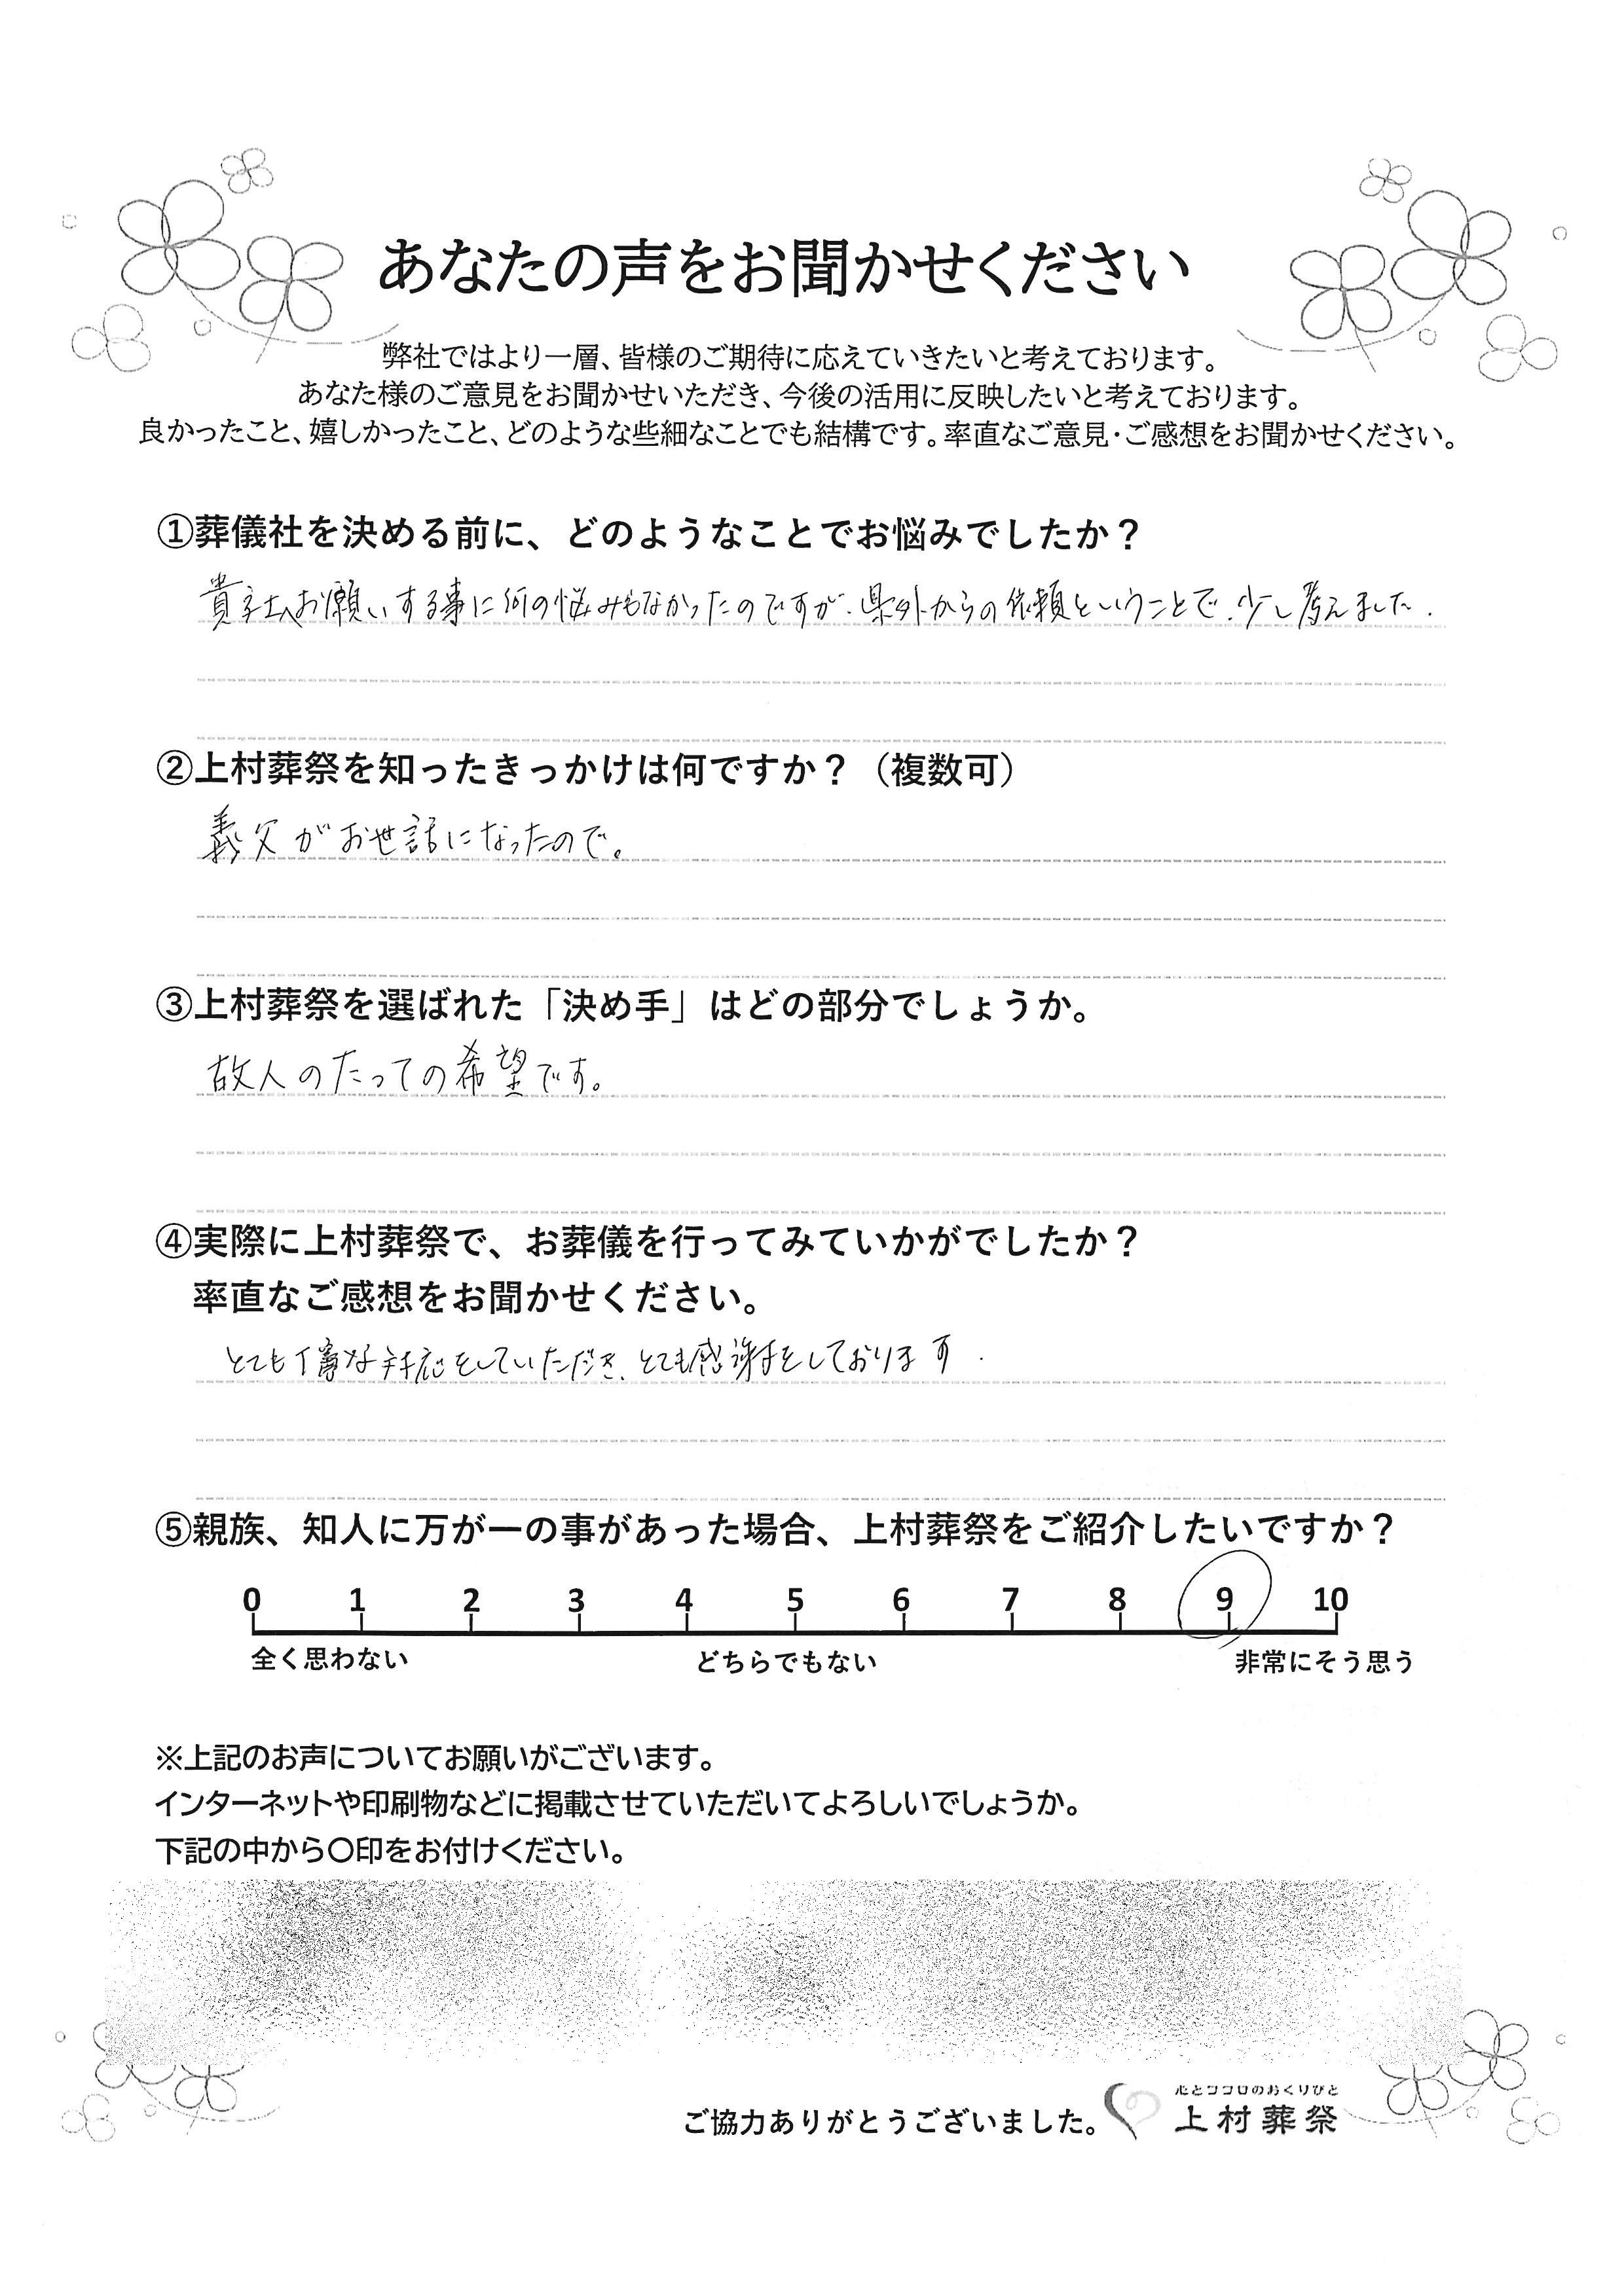 あなたの声をお聞かせください
弊社ではより一層、皆様のご期待に応えていきたいと考えております。
あなた様のご意見をお聞かせいただき、今後の活用に反映したいと考えております。
良かったこと、嬉しかったこと、どのような些細なことでも結構です。率直なご意見・ご感想をお聞かせください。
①葬儀社を決める前に、どのようなことでお悩みでしたか？
貴社へお願いする事に何の悩みもなかったのですが、県外からの依頼ということで、少し考えました.
②上村葬祭を知ったきっかけは何ですか？（複数可）
義父がお世話になったので。
③上村葬祭を選ばれた「決め手」はどの部分でしょうか。
故人のたっての希望です。
④実際に上村葬祭で、お葬儀を行ってみていかがでしたか？
率直なご感想をお聞かせください。
とても丁寧な対応をしていただき、とても感謝をしております.
⑤親族、知人に万が一の事があった場合、上村葬祭をご紹介したいですか？
0 1 2 3 4 5 6 7 8 9 10
全く思わない どちらでもない 非常にそう思う
※上記のお声についてお願いがございます。
インターネットや印刷物などに掲載させていただいてよろしいでしょうか。
下記の中から〇印をお付けください。
心とココロのおくりびと
ご協力ありがとうございました。 上村葬祭